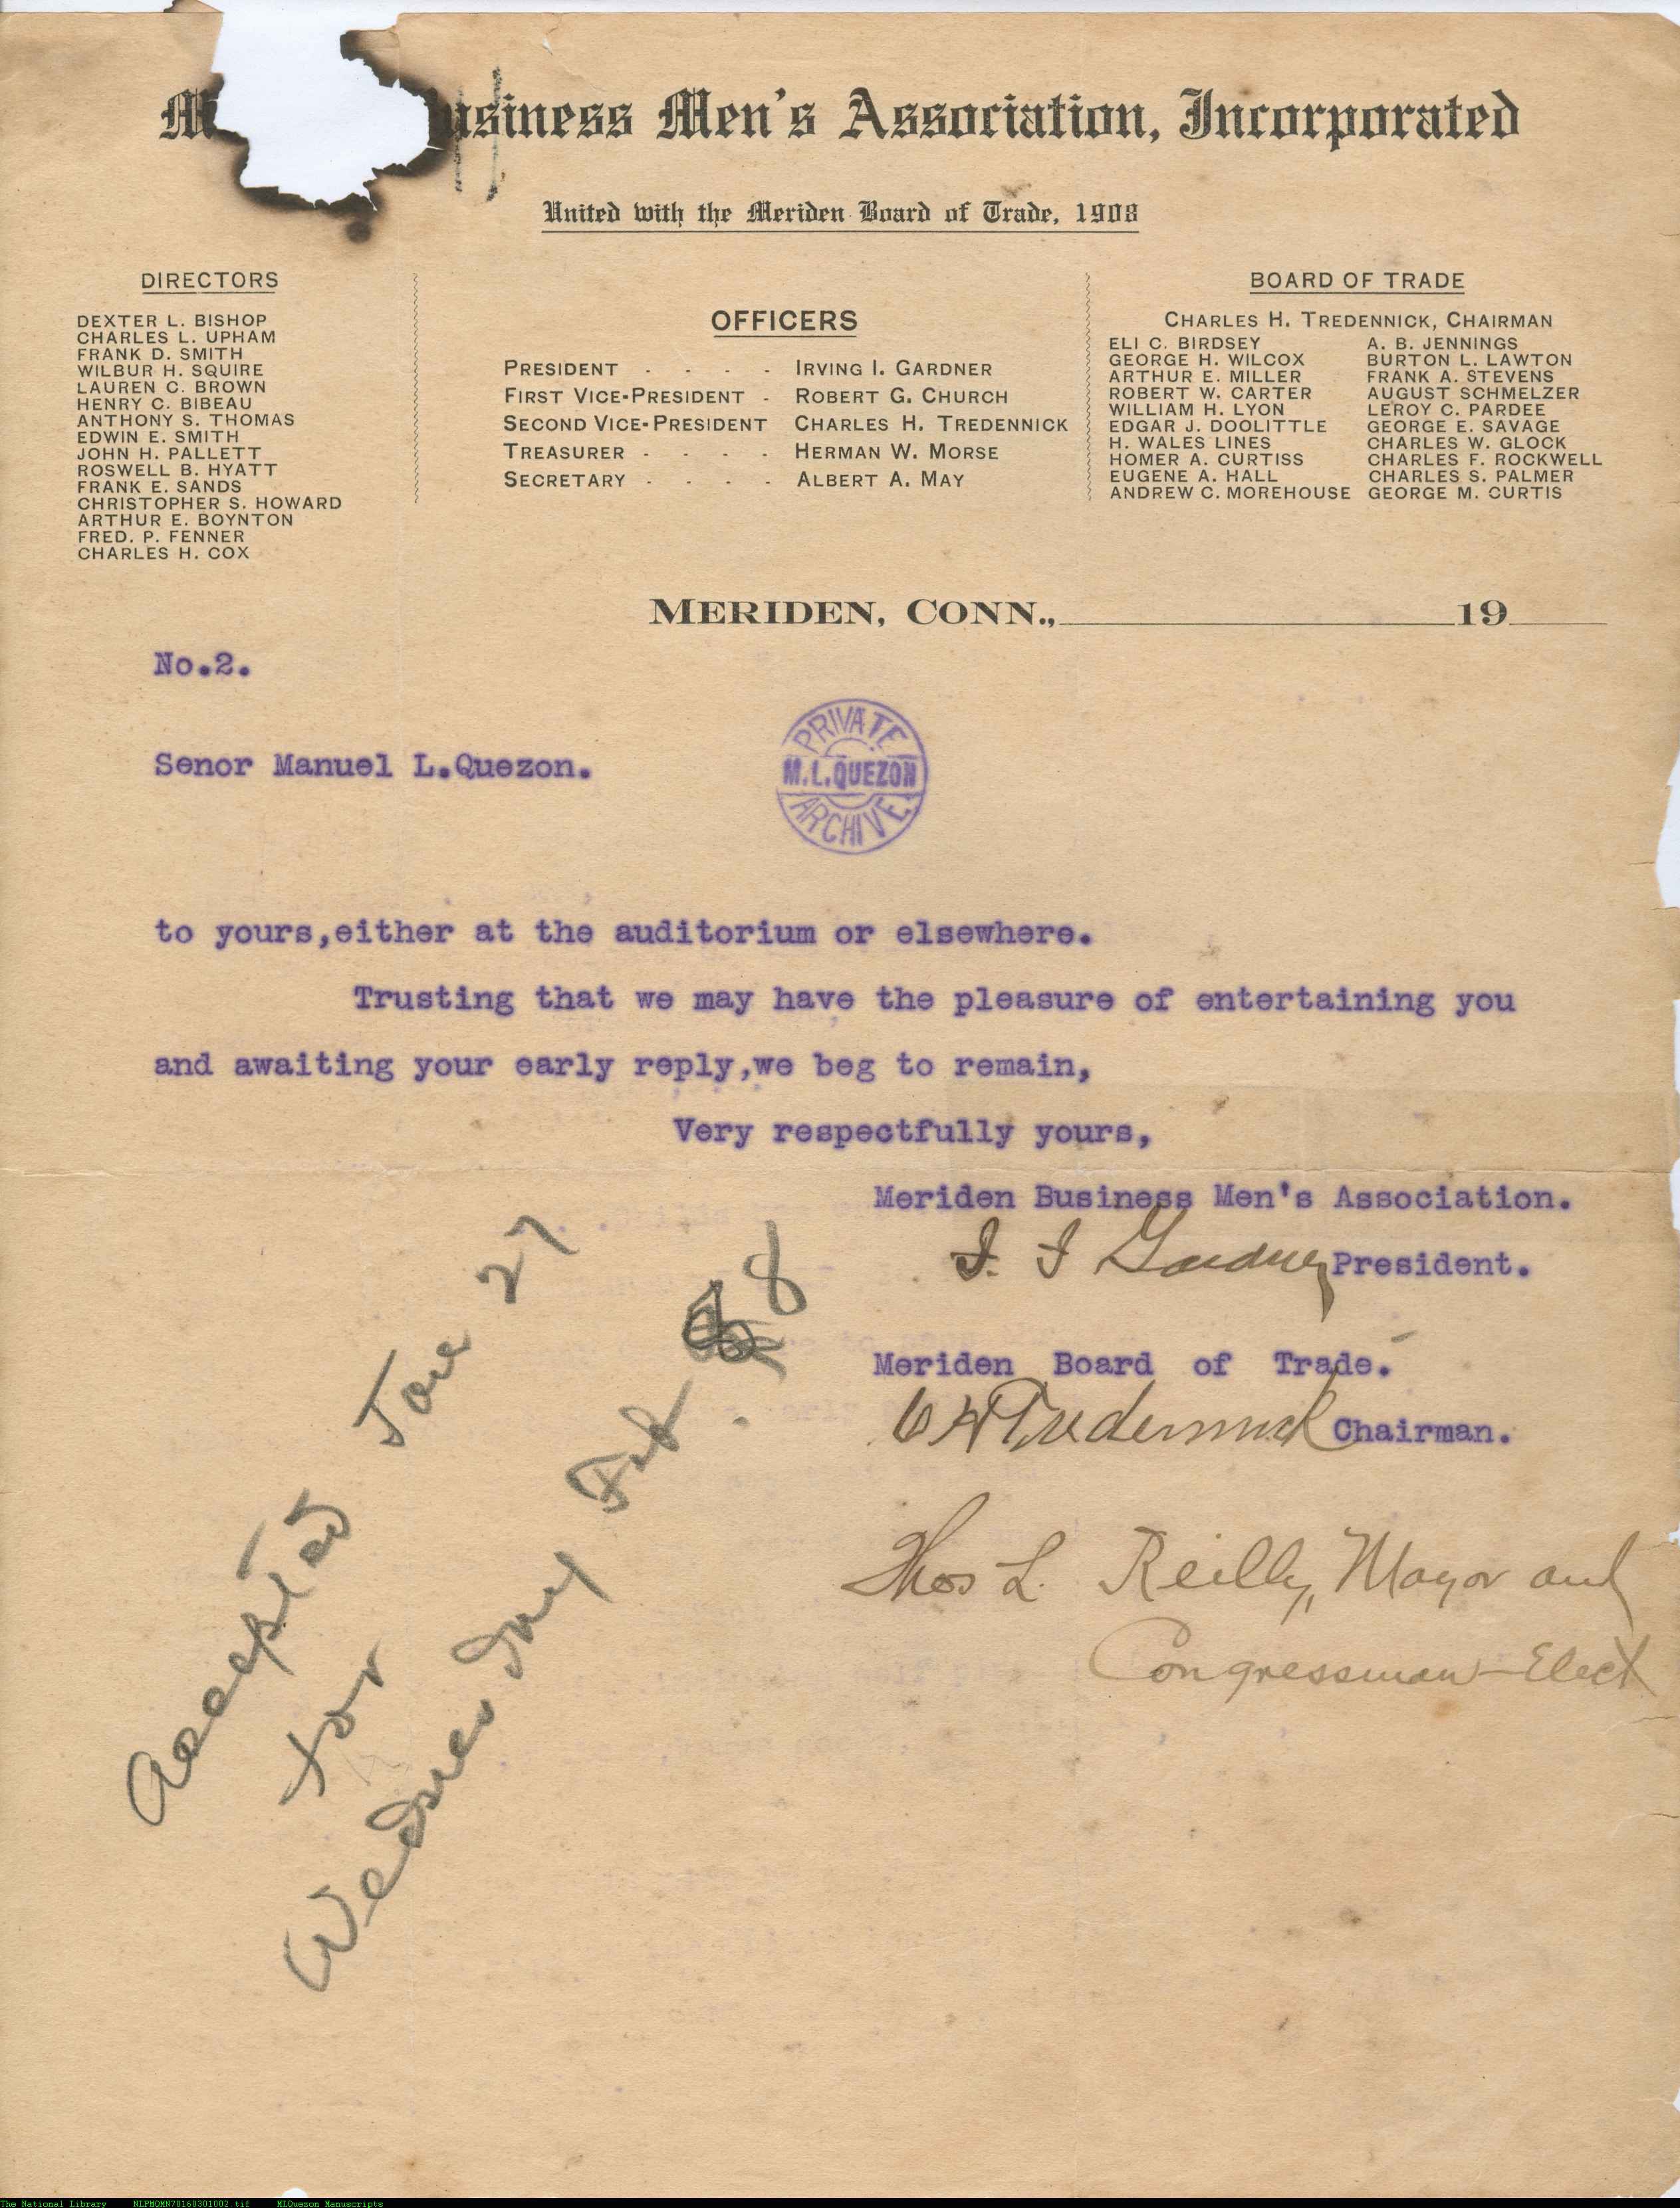 usiness Men's Association, Incorporated
United with the Meriden Board of Trade, 1908
DIRECTORS
DEXTER L. BISHOP
CHARLES L. UPHAM
FRANK D. SMITH
WILBUR H. SQUIRE
LAUREN C. BROWN
HENRY C. BIBEAU
ANTHONY S. THOMAS
EDWIN E. SMITH
JOHN H. PALLETT
ROSWELL B. HYATT
FRANK E. SANDS
CHRISTOPHER S. HOWARD
ARTHUR E. BOYNTON
FRED. P. FENNER
CHARLES H. COX
OFFICERS
PRESIDENT - - - - IRVING I. GARDNER
FIRST VICE-PRESIDENT - ROBERT G. CHURCH
SECOND VICE-PRESIDENT CHARLES H. TREDENNICK
TREASURER - - - - HERMAN W. MORSE
SECRETARY - - - - ALBERT A. MAY
BOARD OF TRADE
CHARLES H. TREDENNICK, CHAIRMAN
ELI C. BIRDSEY
GEORGE H. WILCOX
ARTHUR E. MILLER
ROBERT W. CARTER
WILLIAM H. LYON
EDGAR J. DOOLITTLE
H. WALES LINES
HOMER A. CURTISS
EUGENE A. HALL
ANDREW C. MOREHOUSE
A. B. JENNINGS
BURTON L. LAWTON
FRANK A. STEVENS
AUGUST SCHMELZER
LEROY C. PARDEE
GEORGE E. SAVAGE
CHARLES W. GLOCK
CHARLES F. ROCKWELL
CHARLES S. PALMER
GEORGE M. CURTIS
MERIDEN, CONN., 19
No.2.
PRIVATE
M.L.QUEZON
ARCHIVE
Senor Manuel L.Quezon.
to yours,either at the auditorium or elsewhere.
Trusting that we may have the pleasure of entertaining you
and awaiting your early reply,we beg to remain,
Very respectfully yours,
Meriden Business Men's Association.
I. I Gardner President.
Meriden Board of Trade.
C H Tredennick Chairman.
Thos L. Reilly, Mayor and
Congressman-Elect
Accepted Jan 27
for
Wednesday Feb. 8
The National Library NLPMQMN70160301002.tif MLQuezon Manuscripts